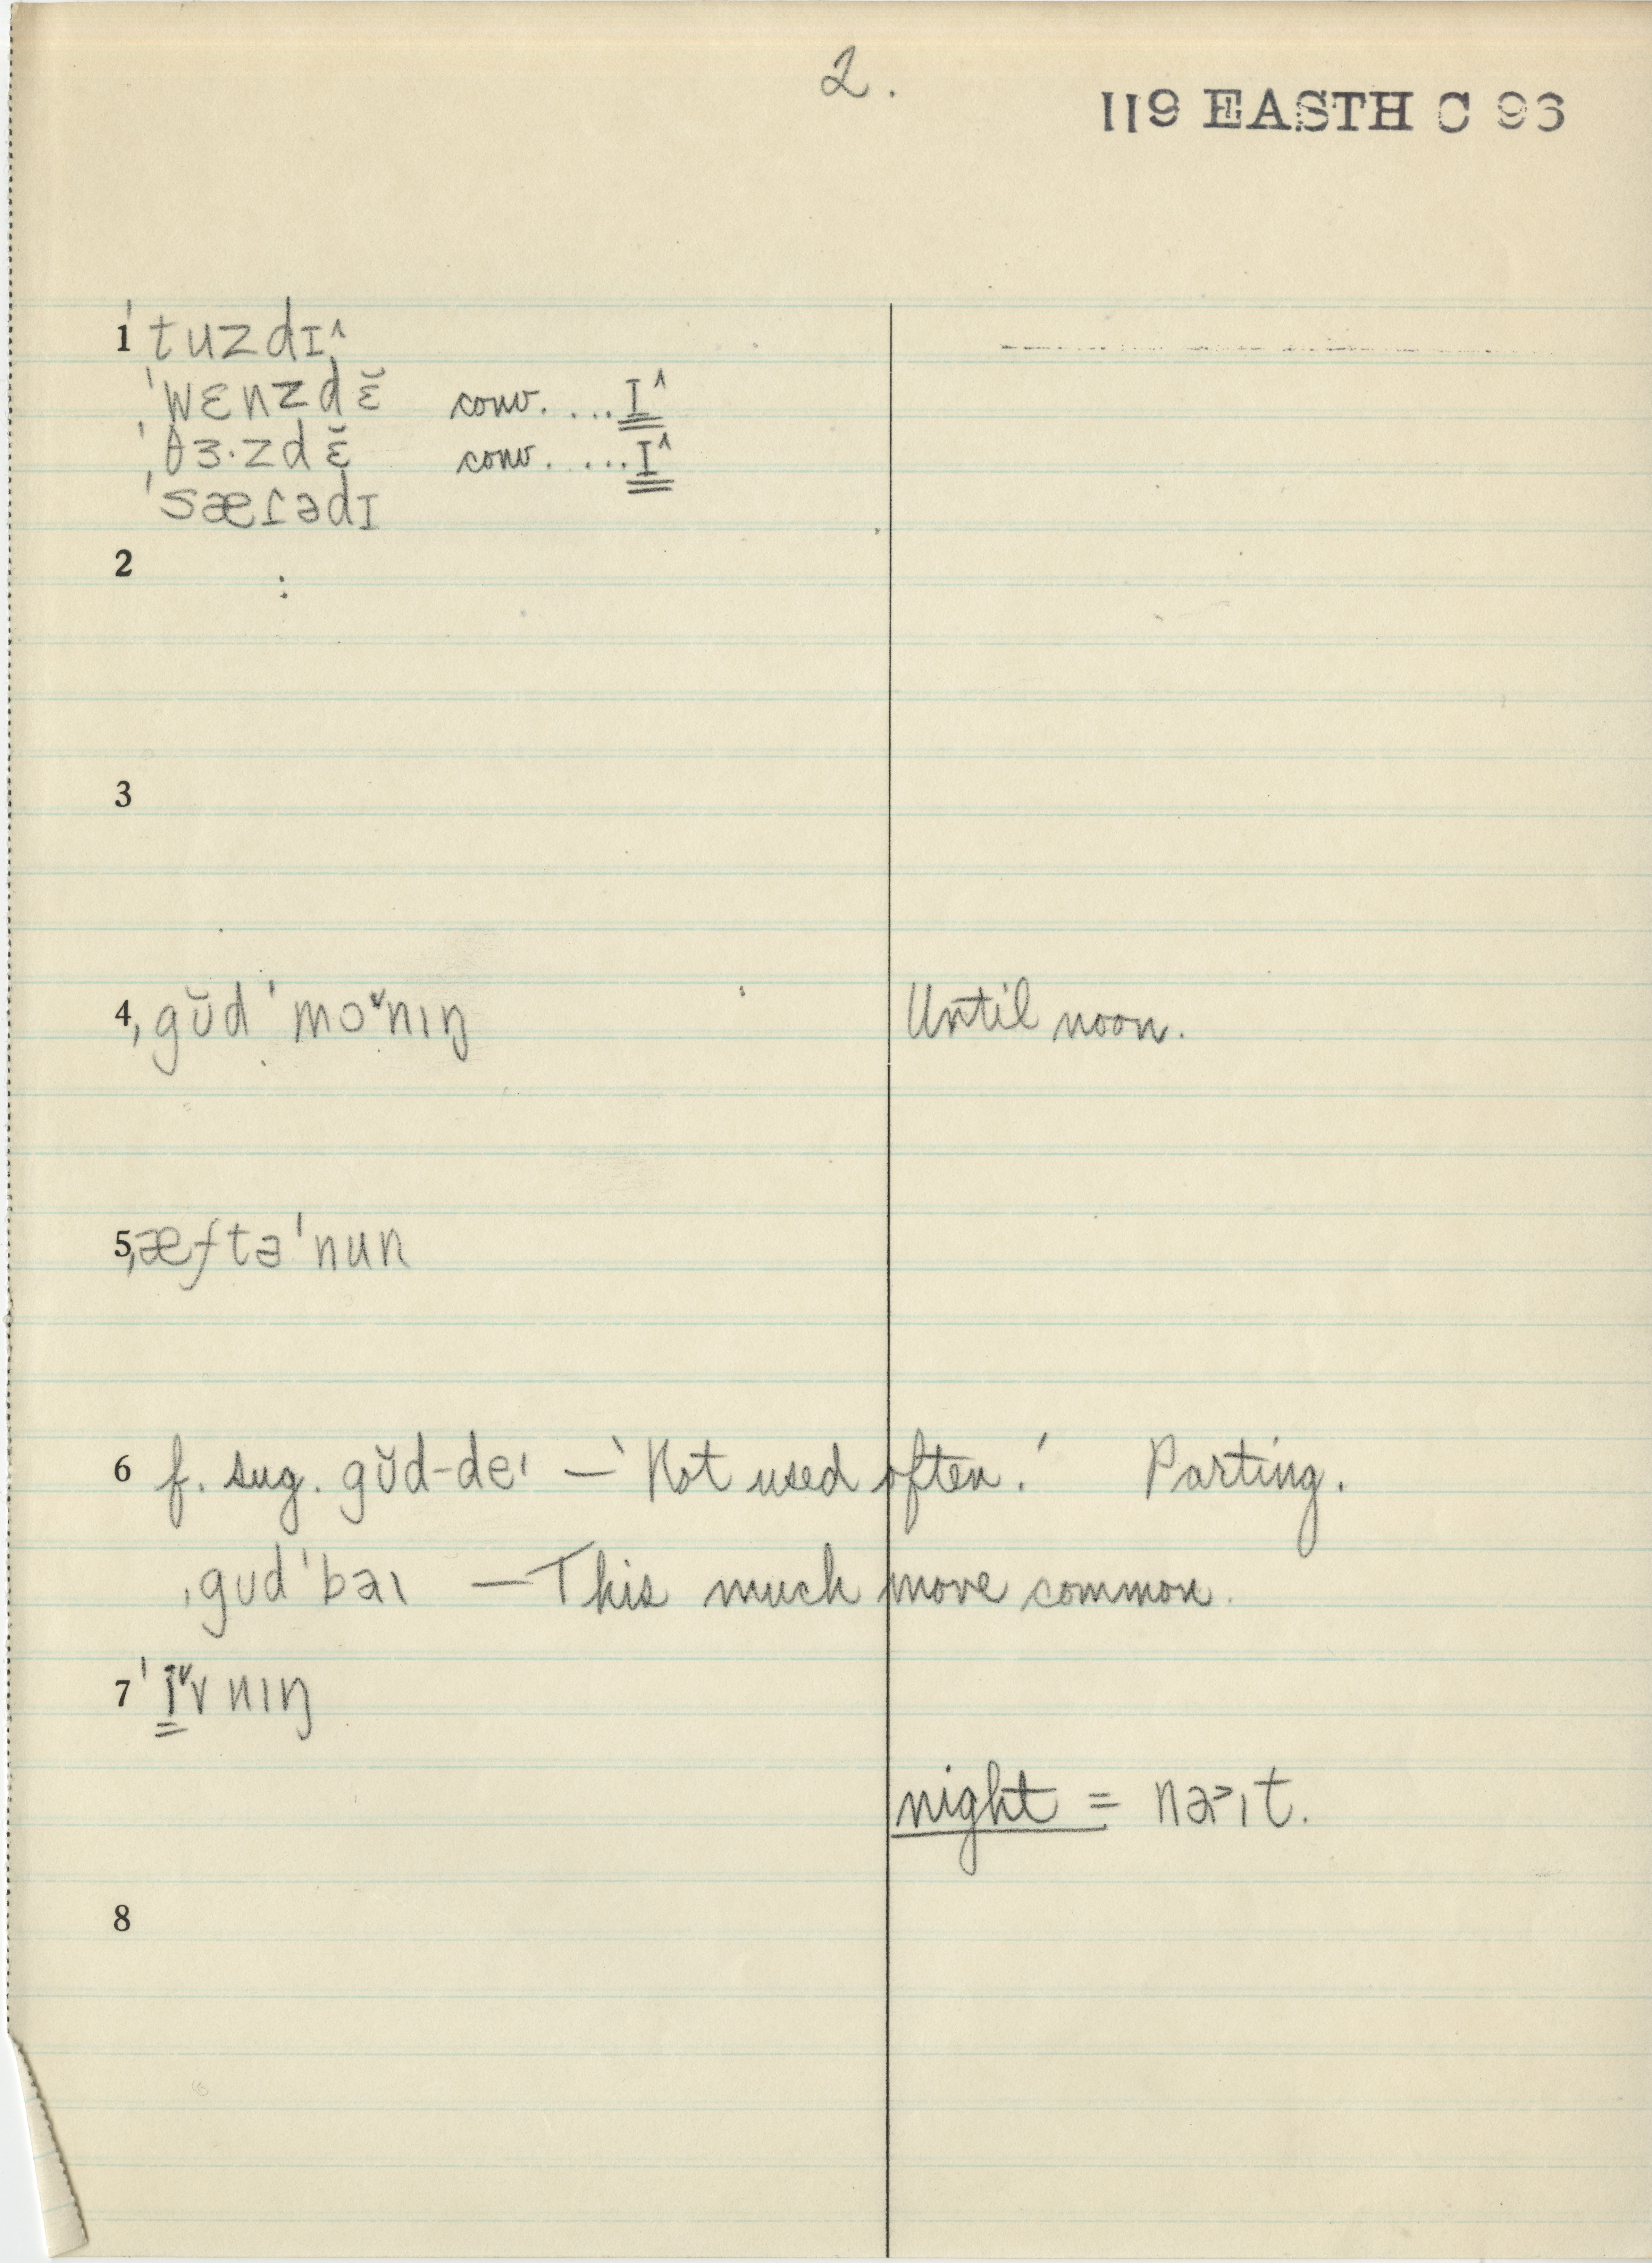 2.
119 EASTH C 96
1 ˈtuzdɪ^
ˈwɛnzdɛ̆ conv. ...ɪ^
ˈθɜ·zdɛ̆ conv. ...ɪ^
ˈsæɾədɪ
2
3
4 ˌgŭdˈmoˇnɪŋ Until noon.
5 ˌæftəˈnun
6 f. sug. gŭd-deɪ — 'Not used often.' Parting.
ˌgʊdˈbaɪ — This much more common.
7 ˈɪˇvnɪŋ
night = na>ɪt.
8